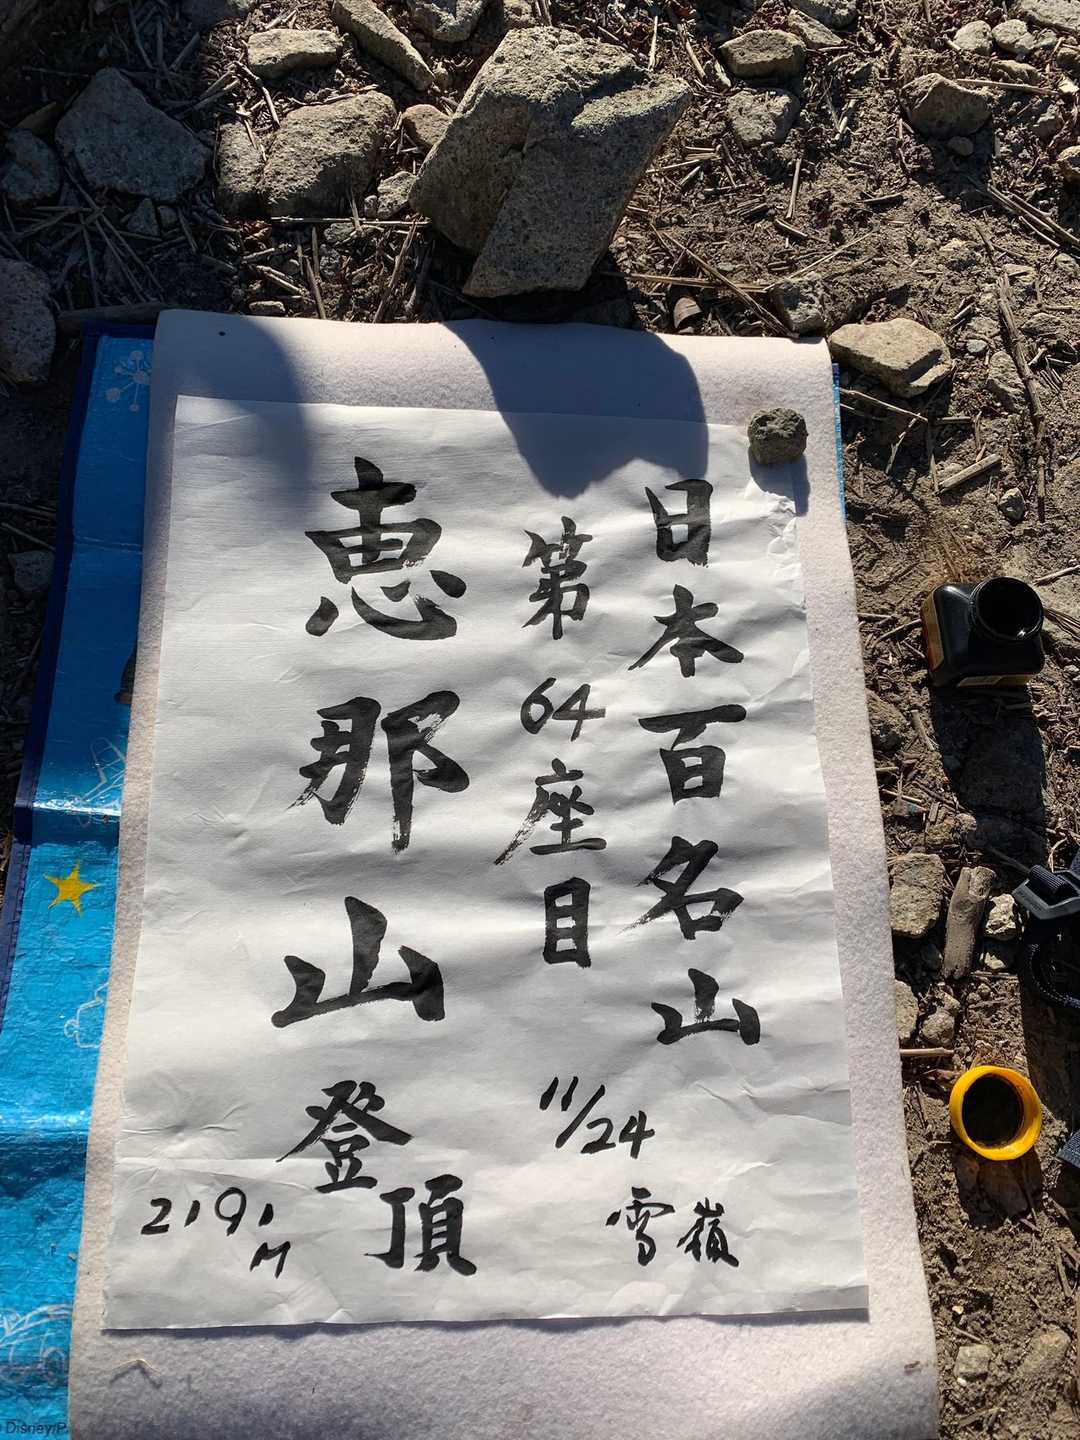 日本百名山
第64座目
11/24
雪嶺
恵那山
登頂
2191M
© Disney/P